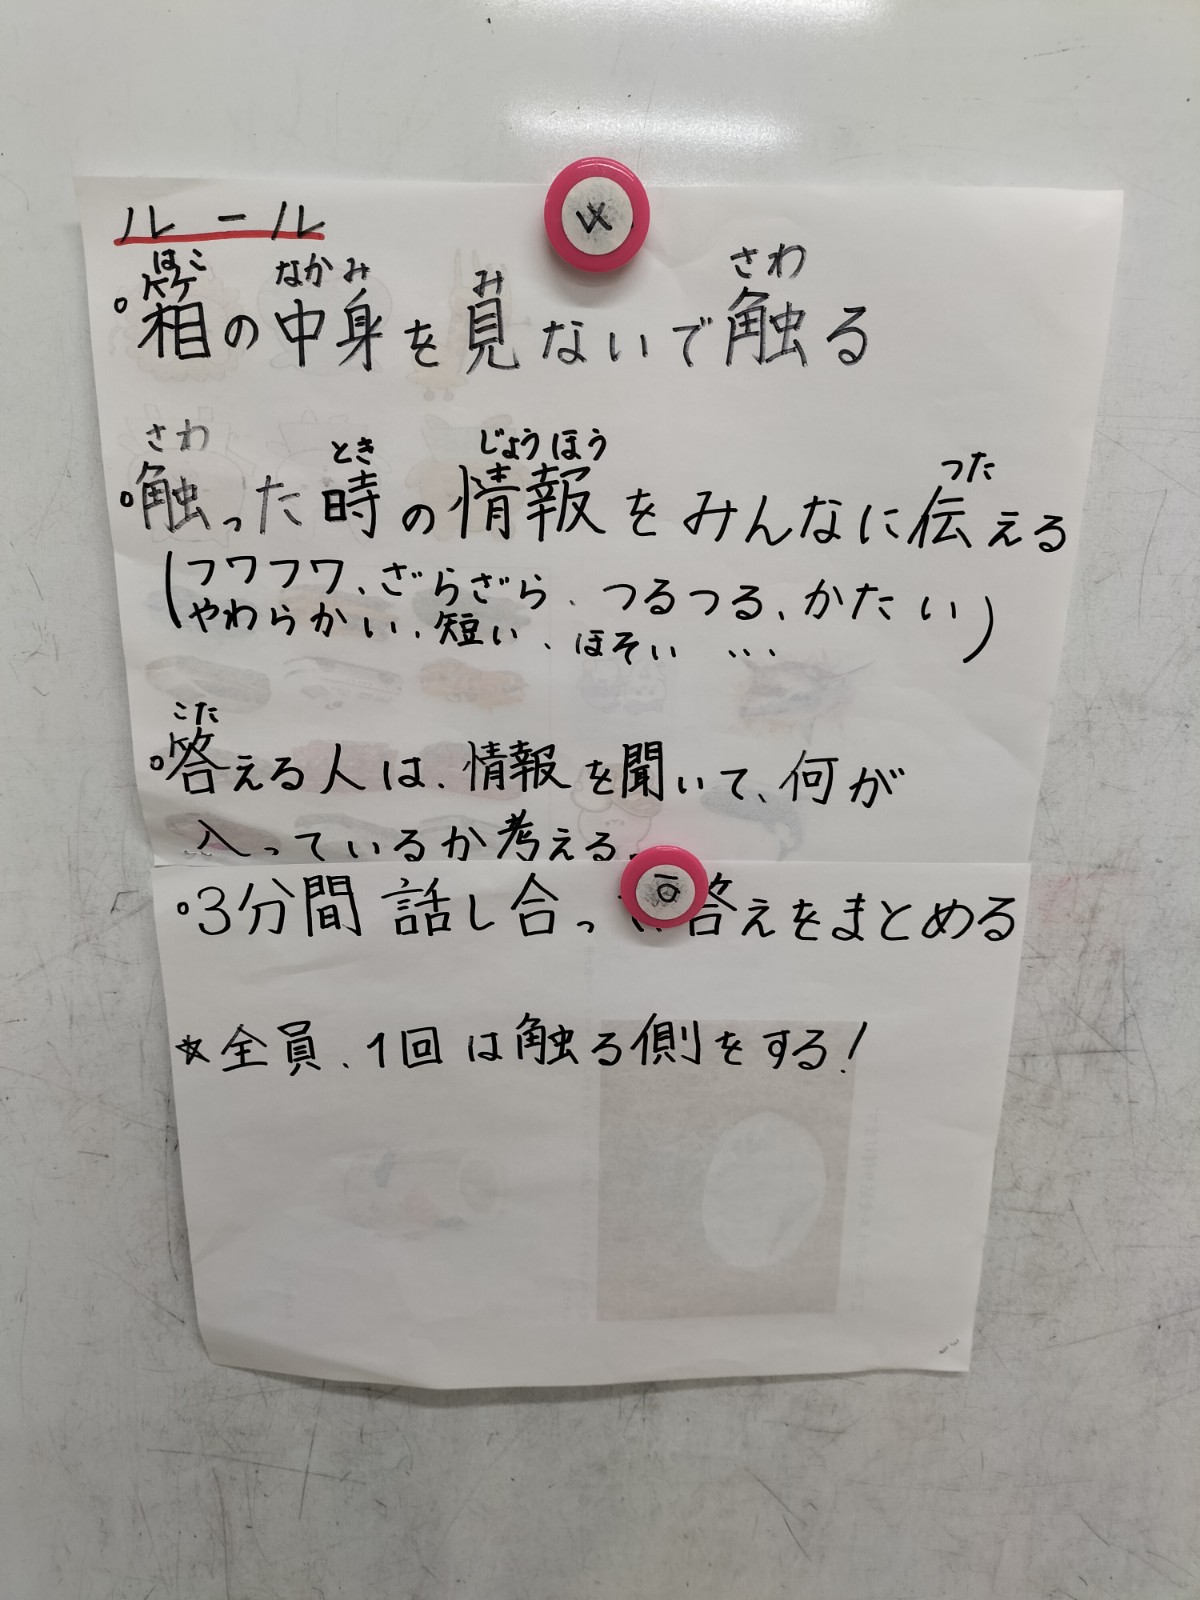 ルール
はこ なかみ み さわ
。箱の中身を見ないで触る
さわ とき じょうほう つた
。触った時の情報をみんなに伝える
(フワフワ、ざらざら、つるつる、かたい
やわらかい、短い、ほそい …)
こた
。答える人は、情報を聞いて、何が
入っているか考える。
。3分間 話し合っ 答えをまとめる
☆全員、1回は触る側をする!